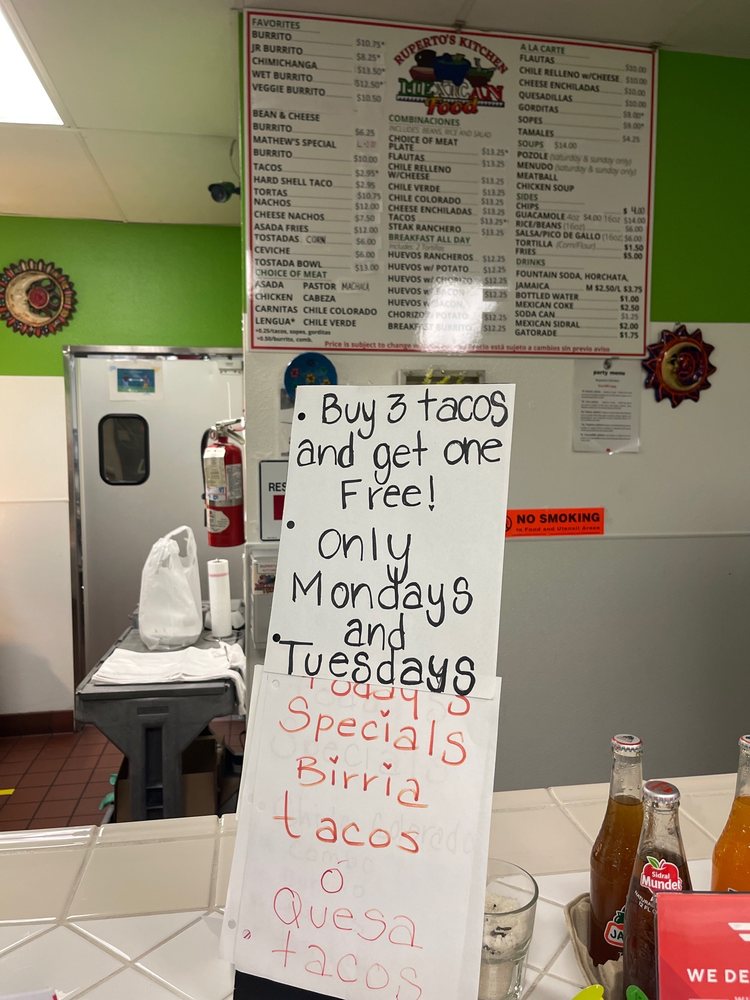 FAVORITES
BURRITO $10.75*
JR BURRITO $8.25*
CHIMICHANGA $13.50*
WET BURRITO $12.50*
VEGGIE BURRITO $10.50
BEAN & CHEESE
BURRITO $6.25
MATHEW'S SPECIAL
BURRITO $10.00
TACOS $2.95*
HARD SHELL TACO $2.95
TORTAS $10.75
NACHOS $12.00
CHEESE NACHOS $7.50
ASADA FRIES $12.00
TOSTADAS CORN $6.00
CEVICHE $6.00
TOSTADA BOWL $13.00
CHOICE OF MEAT
ASADA PASTOR MACHACA
CHICKEN CABEZA
CARNITAS CHILE COLORADO
LENGUA* CHILE VERDE
+0.25/tacos, sopes, gorditas
+0.50/burrito, comb.
RUPERTO'S KITCHEN
MEXICAN
Food
COMBINACIONES
INCLUDES: BEANS, RICE AND SALAD
CHOICE OF MEAT
PLATE $13.25*
FLAUTAS $13.25
CHILE RELLENO
W/CHEESE $13.25
CHILE VERDE $13.25
CHILE COLORADO $13.25
CHEESE ENCHILADAS $13.25
TACOS $13.25*
STEAK RANCHERO $13.25
BREAKFAST ALL DAY
Includes: 2 Tortillas
HUEVOS RANCHEROS $12.25
HUEVOS w/ POTATO $12.25
HUEVOS w/ CHORIZO $12.25
HUEVOS w/ BACON $12.25
HUEVOS w/ BACON $12.25
CHORIZO w/ POTATO $12.25
BREAKFAST BURRITO $12.25
A LA CARTE
FLAUTAS $10.00
CHILE RELLENO w/CHEESE $10.00
CHEESE ENCHILADAS $10.00
QUESADILLAS $10.00
GORDITAS $9.00*
SOPES $9.00*
TAMALES $4.25
SOUPS $14.00
POZOLE (saturday & sunday only)
MENUDO (saturday & sunday only)
MEATBALL
CHICKEN SOUP
SIDES
CHIPS $4.00
GUACAMOLE 4oz $4.00 16oz $14.00
RICE/BEANS (16oz) $6.00
SALSA/PICO DE GALLO (16oz) $6.00
TORTILLA (Corn/Flour) $1.50
FRIES $5.00
DRINKS
FOUNTAIN SODA, HORCHATA,
JAMAICA M $2.50/L $3.75
BOTTLED WATER $1.00
MEXICAN COKE $2.50
SODA CAN $1.25
MEXICAN SIDRAL $2.00
GATORADE $1.75
Price is subject to change Precio está sujeto a cambios sin previo aviso
party menu
RES
NO SMOKING
in Food and Utensil Areas
• Buy 3 tacos
and get one
Free!
• Only
Mondays
and
• Tuesdays
Today's
Specials
Birria
tacos
o
Quesa
tacos
Sidral
Mundet
JA
WE DE